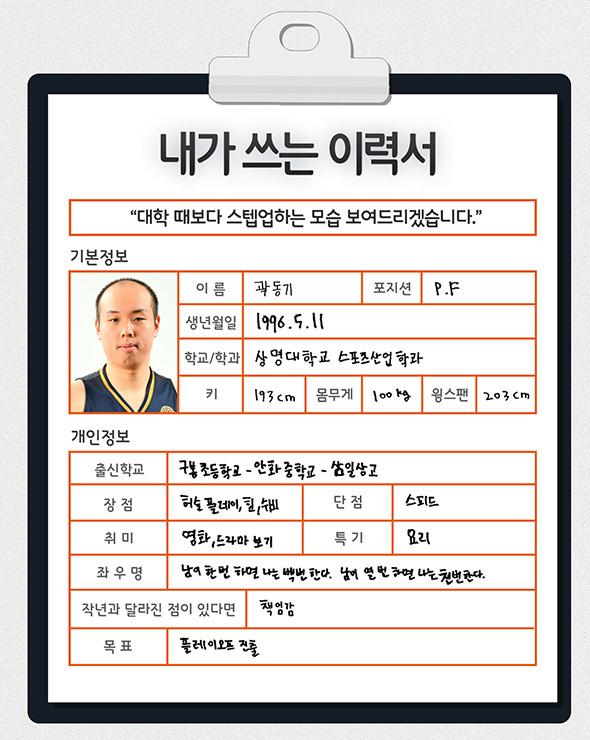 내가 쓰는 이력서
“대학 때보다 스텝업하는 모습 보여드리겠습니다.”
기본정보
이 름 곽동기 포지션 P.F
생년월일 1996.5.11
학교/학과 상명대학교 스포츠산업학과
키 193cm 몸무게 100kg 윙스팬 203cm
개인정보
출신학교 구봉초등학교 - 안화중학교 - 삼일상고
장 점 허슬플레이, 힘, 수비 단 점 스피드
취 미 영화, 드라마 보기 특 기 요리
좌 우 명 남이 한번 하면 나는 백번한다. 남이 열번 하면 나는 천번한다.
작년과 달라진 점이 있다면 책임감
목 표 플레이오프 진출